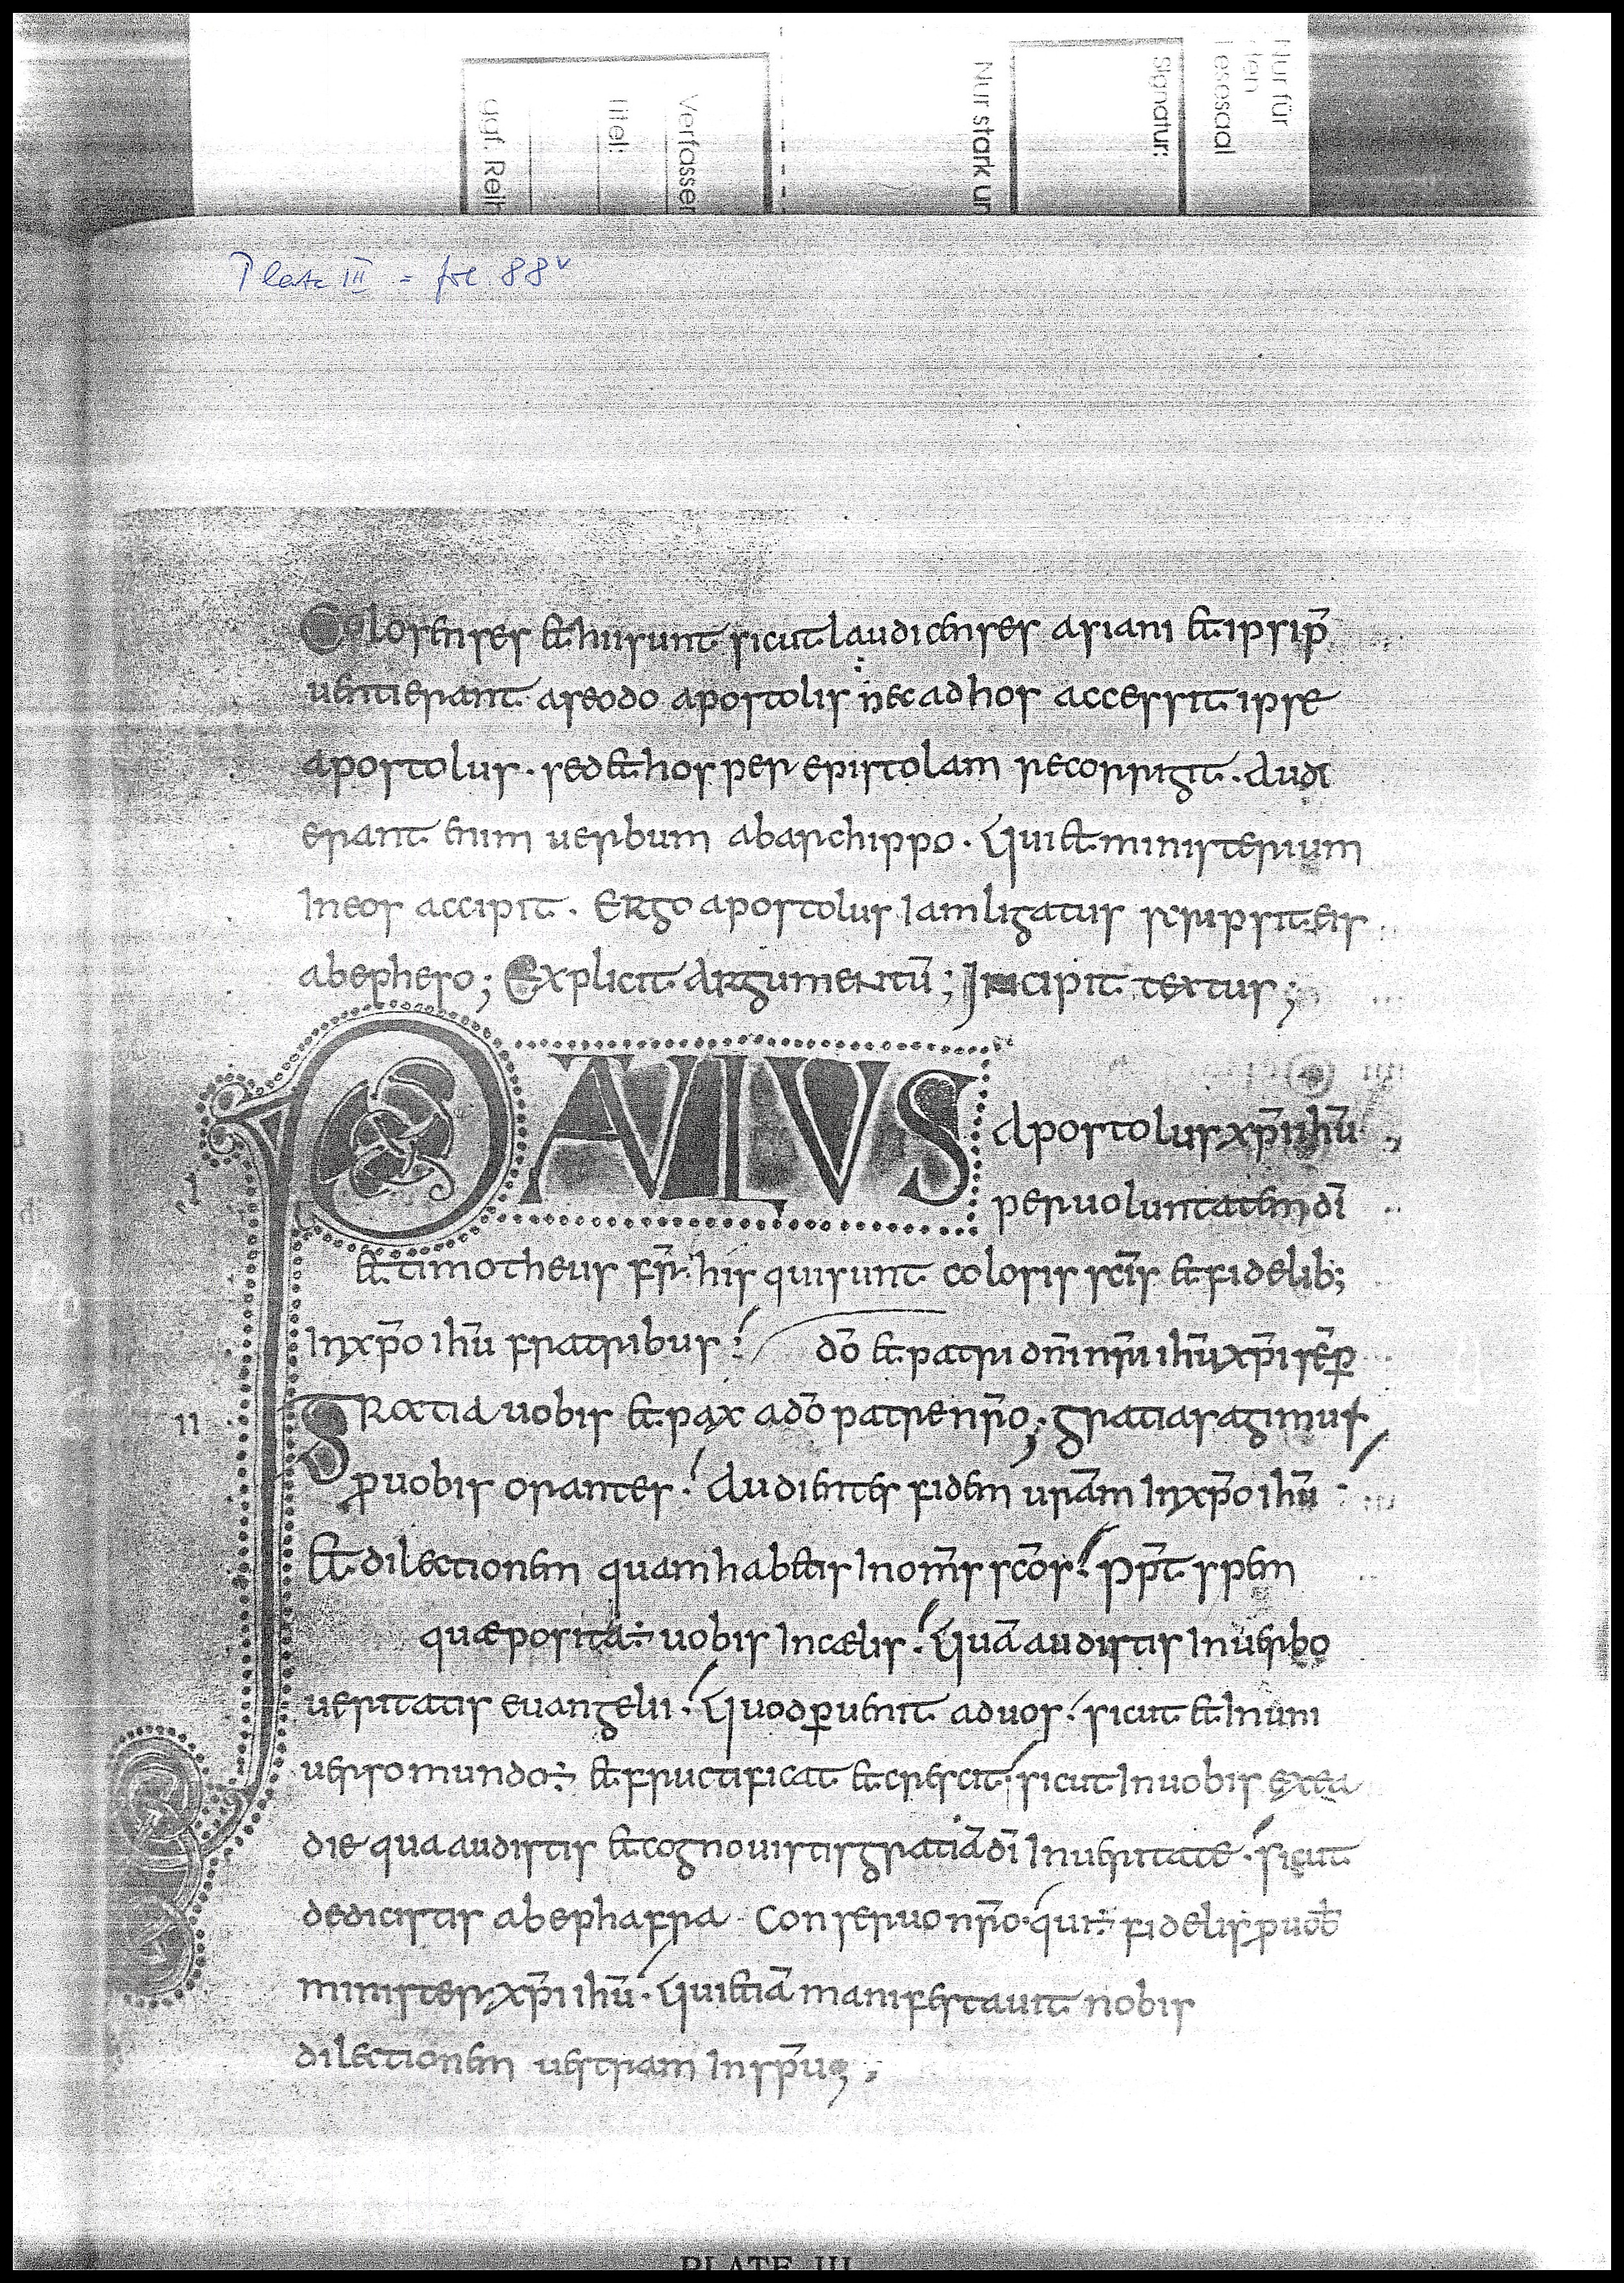 Nur für
den
Lesesaal
Signatur:
Nur stark un
Verfasser
Titel:
ggf. Reih
Plate III = fol. 88v
Colosenses et hii sunt sicut laudicenses asiani et ipsi p̄
uenti erant a seodo apostolis nec ad hos accessit ipse
apostolus · sed et hos per epistolam recorrigit · Audi
erant enim uerbum ab archippo · Qui et ministerium
In eos accipit · Ergo apostolus Iam ligatus scripsit eis
ab epheso; Explicit Argumentū; Incipit textus;
PAULUS Apostolus xp̄i ihū
.I per uoluntatem dī
et timotheus fr̄ · his qui sunt colosis sc̄īs et fidelib;
In xp̄o ihū fratribus · dō et patri dn̄i nr̄i ihū xp̄i sēp̄
II Gratia uobis et pax a dō patre nr̄o; gratias agimus
pro uobis orantes · Audientes fidem ur̄am In xp̄o ihū
et dilectionem quam habetis In om̄s sc̄os · pp̄t spem
quæ posita ÷ uobis In cælis · Quā audistis In uerbo
ueritatis euangelii · Quod peruenit ad uos · sicut et In uni
uerso mundo ÷ et fructificat et crescit · sicut In uobis ex ea
die qua audistis et cognouistis gratiā dī In ueritate · sicut
dedicistis ab ephafra · Conseruo nr̄o · qui ÷ fidelis pro uob̄
minister xp̄i ihū · Qui etiā manifestauit nobis
dilectionem uestram In sp̄u;
PLATE III